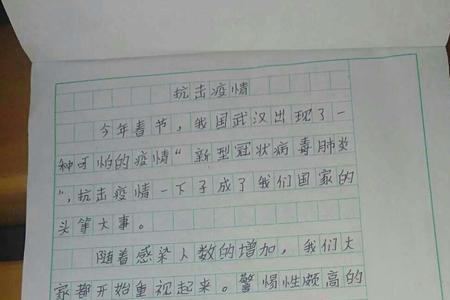 抗击疫情
今年春节，我国武汉出现了一
种可怕的疫情“新型冠状病毒肺炎
”，抗击疫情一下子成了我们国家的
头等大事。
随着感染人数的增加，我们大
家都开始重视起来。警惕性颇高的